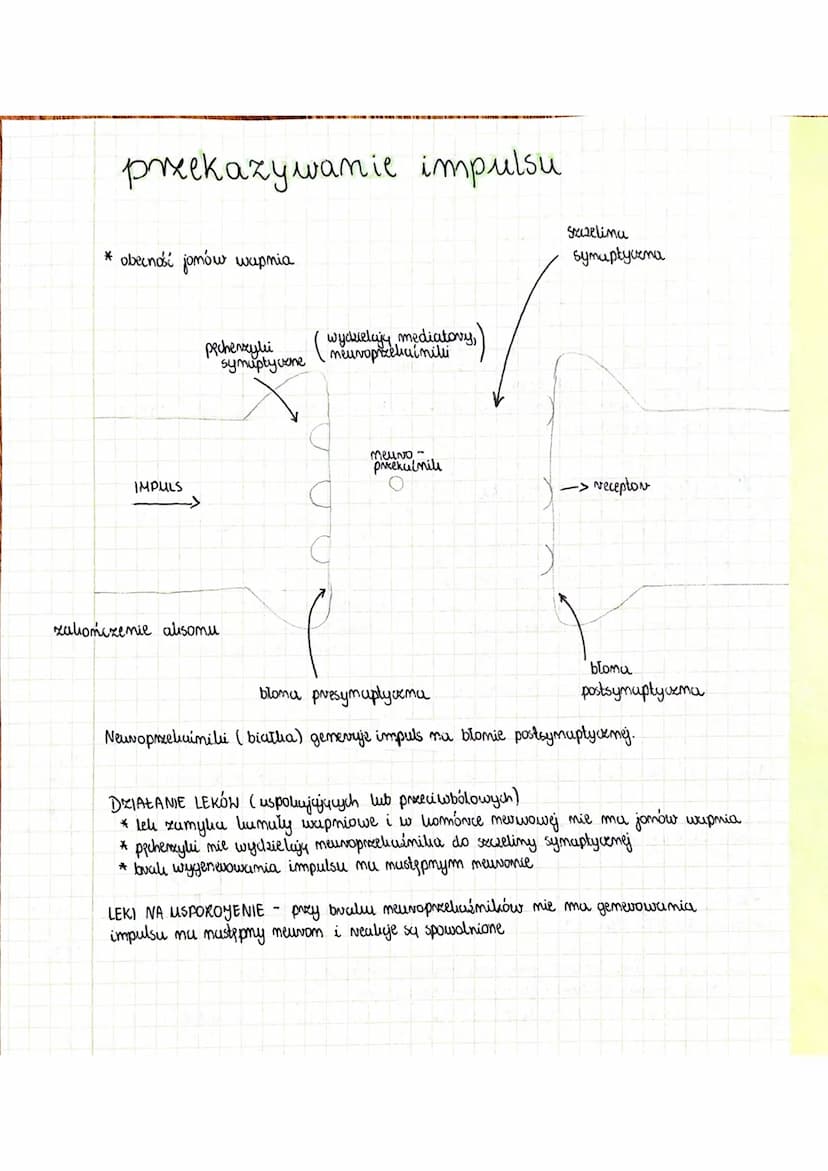 przekazywanie impulsu
szczelina
synaptyczna
* obecność jonów wapnia
(wydzielają mediatory,
neuroprzekaźniki)
pęcherzyki
synaptyczne
neuro-
przekaźnik
IMPULS
-> receptor
zakończenie aksonu
błona
postsynaptyczna
błona presynaptyczna
Neuroprzekaźniki (białka) generuje impuls na błonie postsynaptycznej.
DZIAŁANIE LEKÓW (uspokajających lub przeciwbólowych)
* lek zamyka kanały wapniowe i w komórce nerwowej nie ma jonów wapnia
* pęcherzyki nie wydzielają neuroprzekaźnika do szczeliny synaptycznej
* brak wygenerowania impulsu na następnym neuronie
LEKI NA USPOKOJENIE - przy braku neuroprzekaźników nie ma generowania
impulsu na następny neuron i reakcje są spowolnione